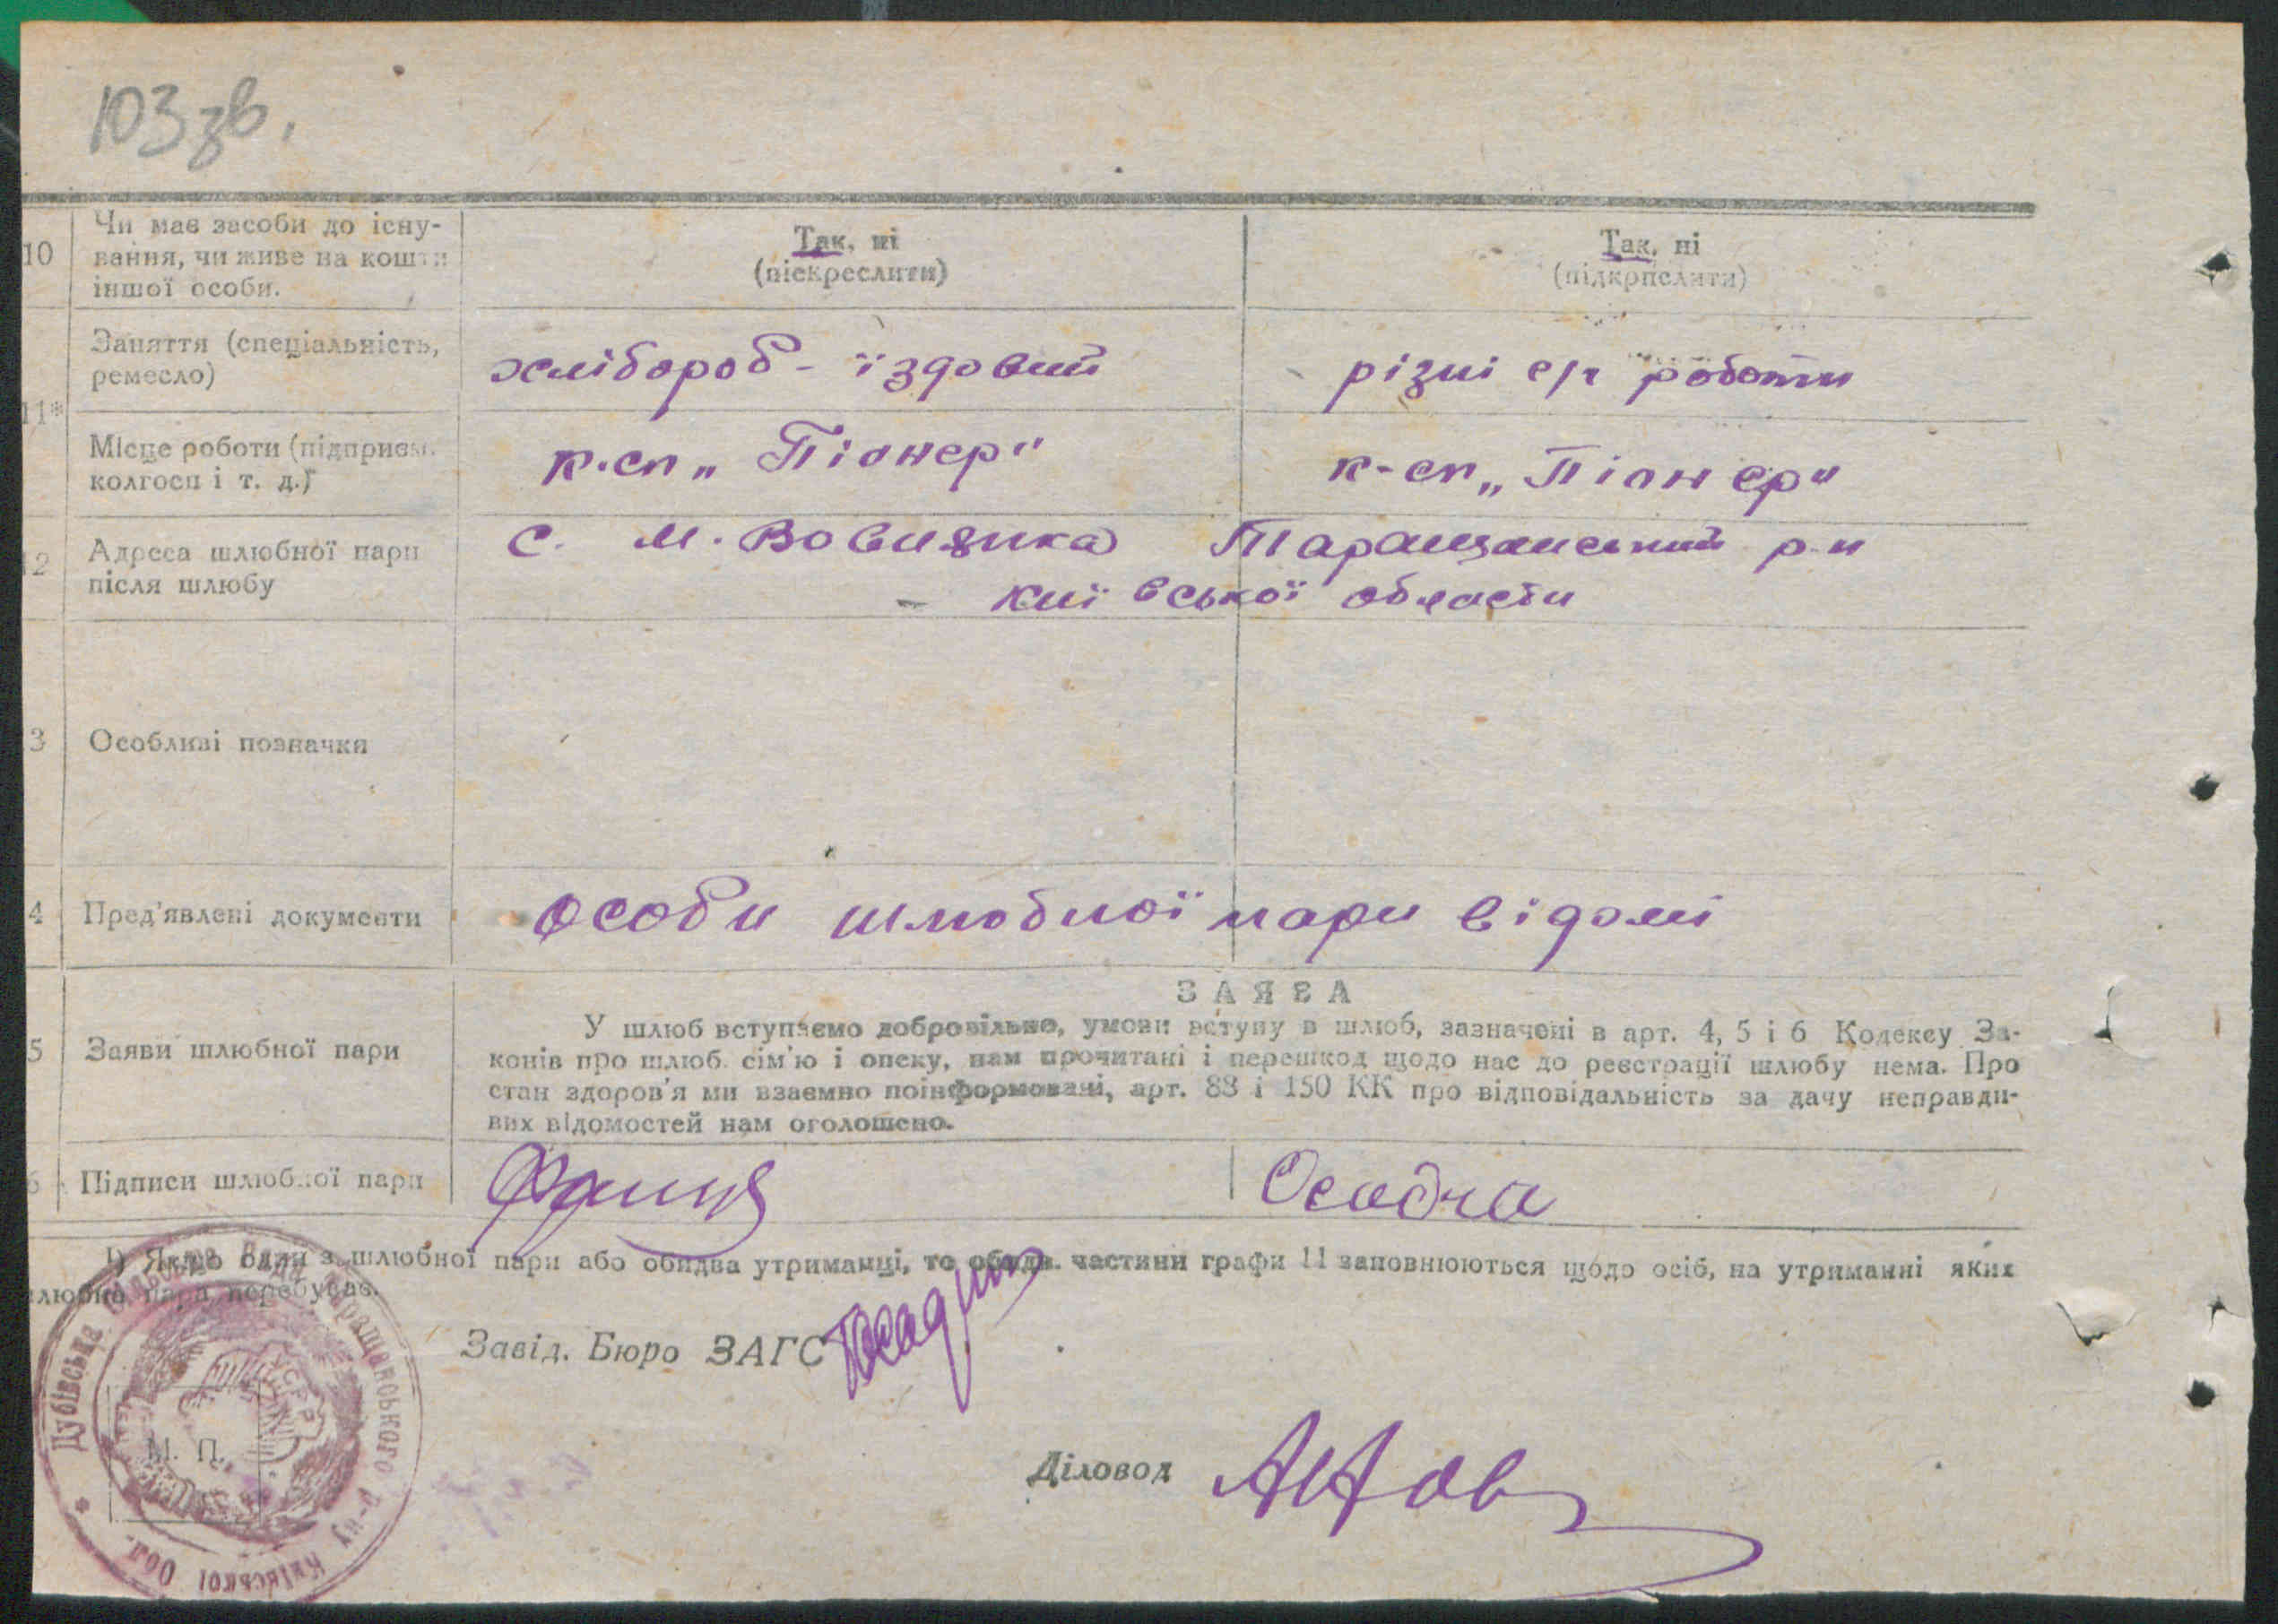 103 зв.
10 Чи має засоби до існу-
вання, чи живе на кошти
іншої особи.
Так, ні
(піскреслити)
Так, ні
(підкрпслити)
11*
Заняття (спеціальність,
ремесло)
хлібороб - їздовий
різні с/г роботи
Місце роботи (підприєм.
колгосп і т. д.)
к-сп „Піонер"
к-сп „Піонєр"
12 Адреса шлюбної пари
після шлюбу
с. М. Вовнянка Таращанський р-н
київської области
3 Особливі позначки
4 Пред'явлені документи
особи шлюбної пари відомі
5 Заяви шлюбної пари
ЗАЯВА
У шлюб вступаємо добровільно, умови вступу в шлюб, зазначені в арт. 4, 5 і 6 Кодексу За-
конів про шлюб. сім'ю і опеку, нам прочитані і перешкод щодо нас до реєстрації шлюбу нема. Про
стан здоров'я ми взаємно поінформовані, арт. 88 і 150 КК про відповідальність за дачу неправди-
вих відомостей нам оголошено.
6 Підписи шлюбної пари
Осадча
1) Якщо один з шлюбної пари або обидва утриманці, то обидв. частини графи 11 заповнюються щодо осіб, на утриманні яких
шлюбна пара перебуває.
Завід. Бюро ЗАГС
М. П.
Діловод
Дубівська Сільська Рада Таращанського р-ну Київської Обл.
УСРР